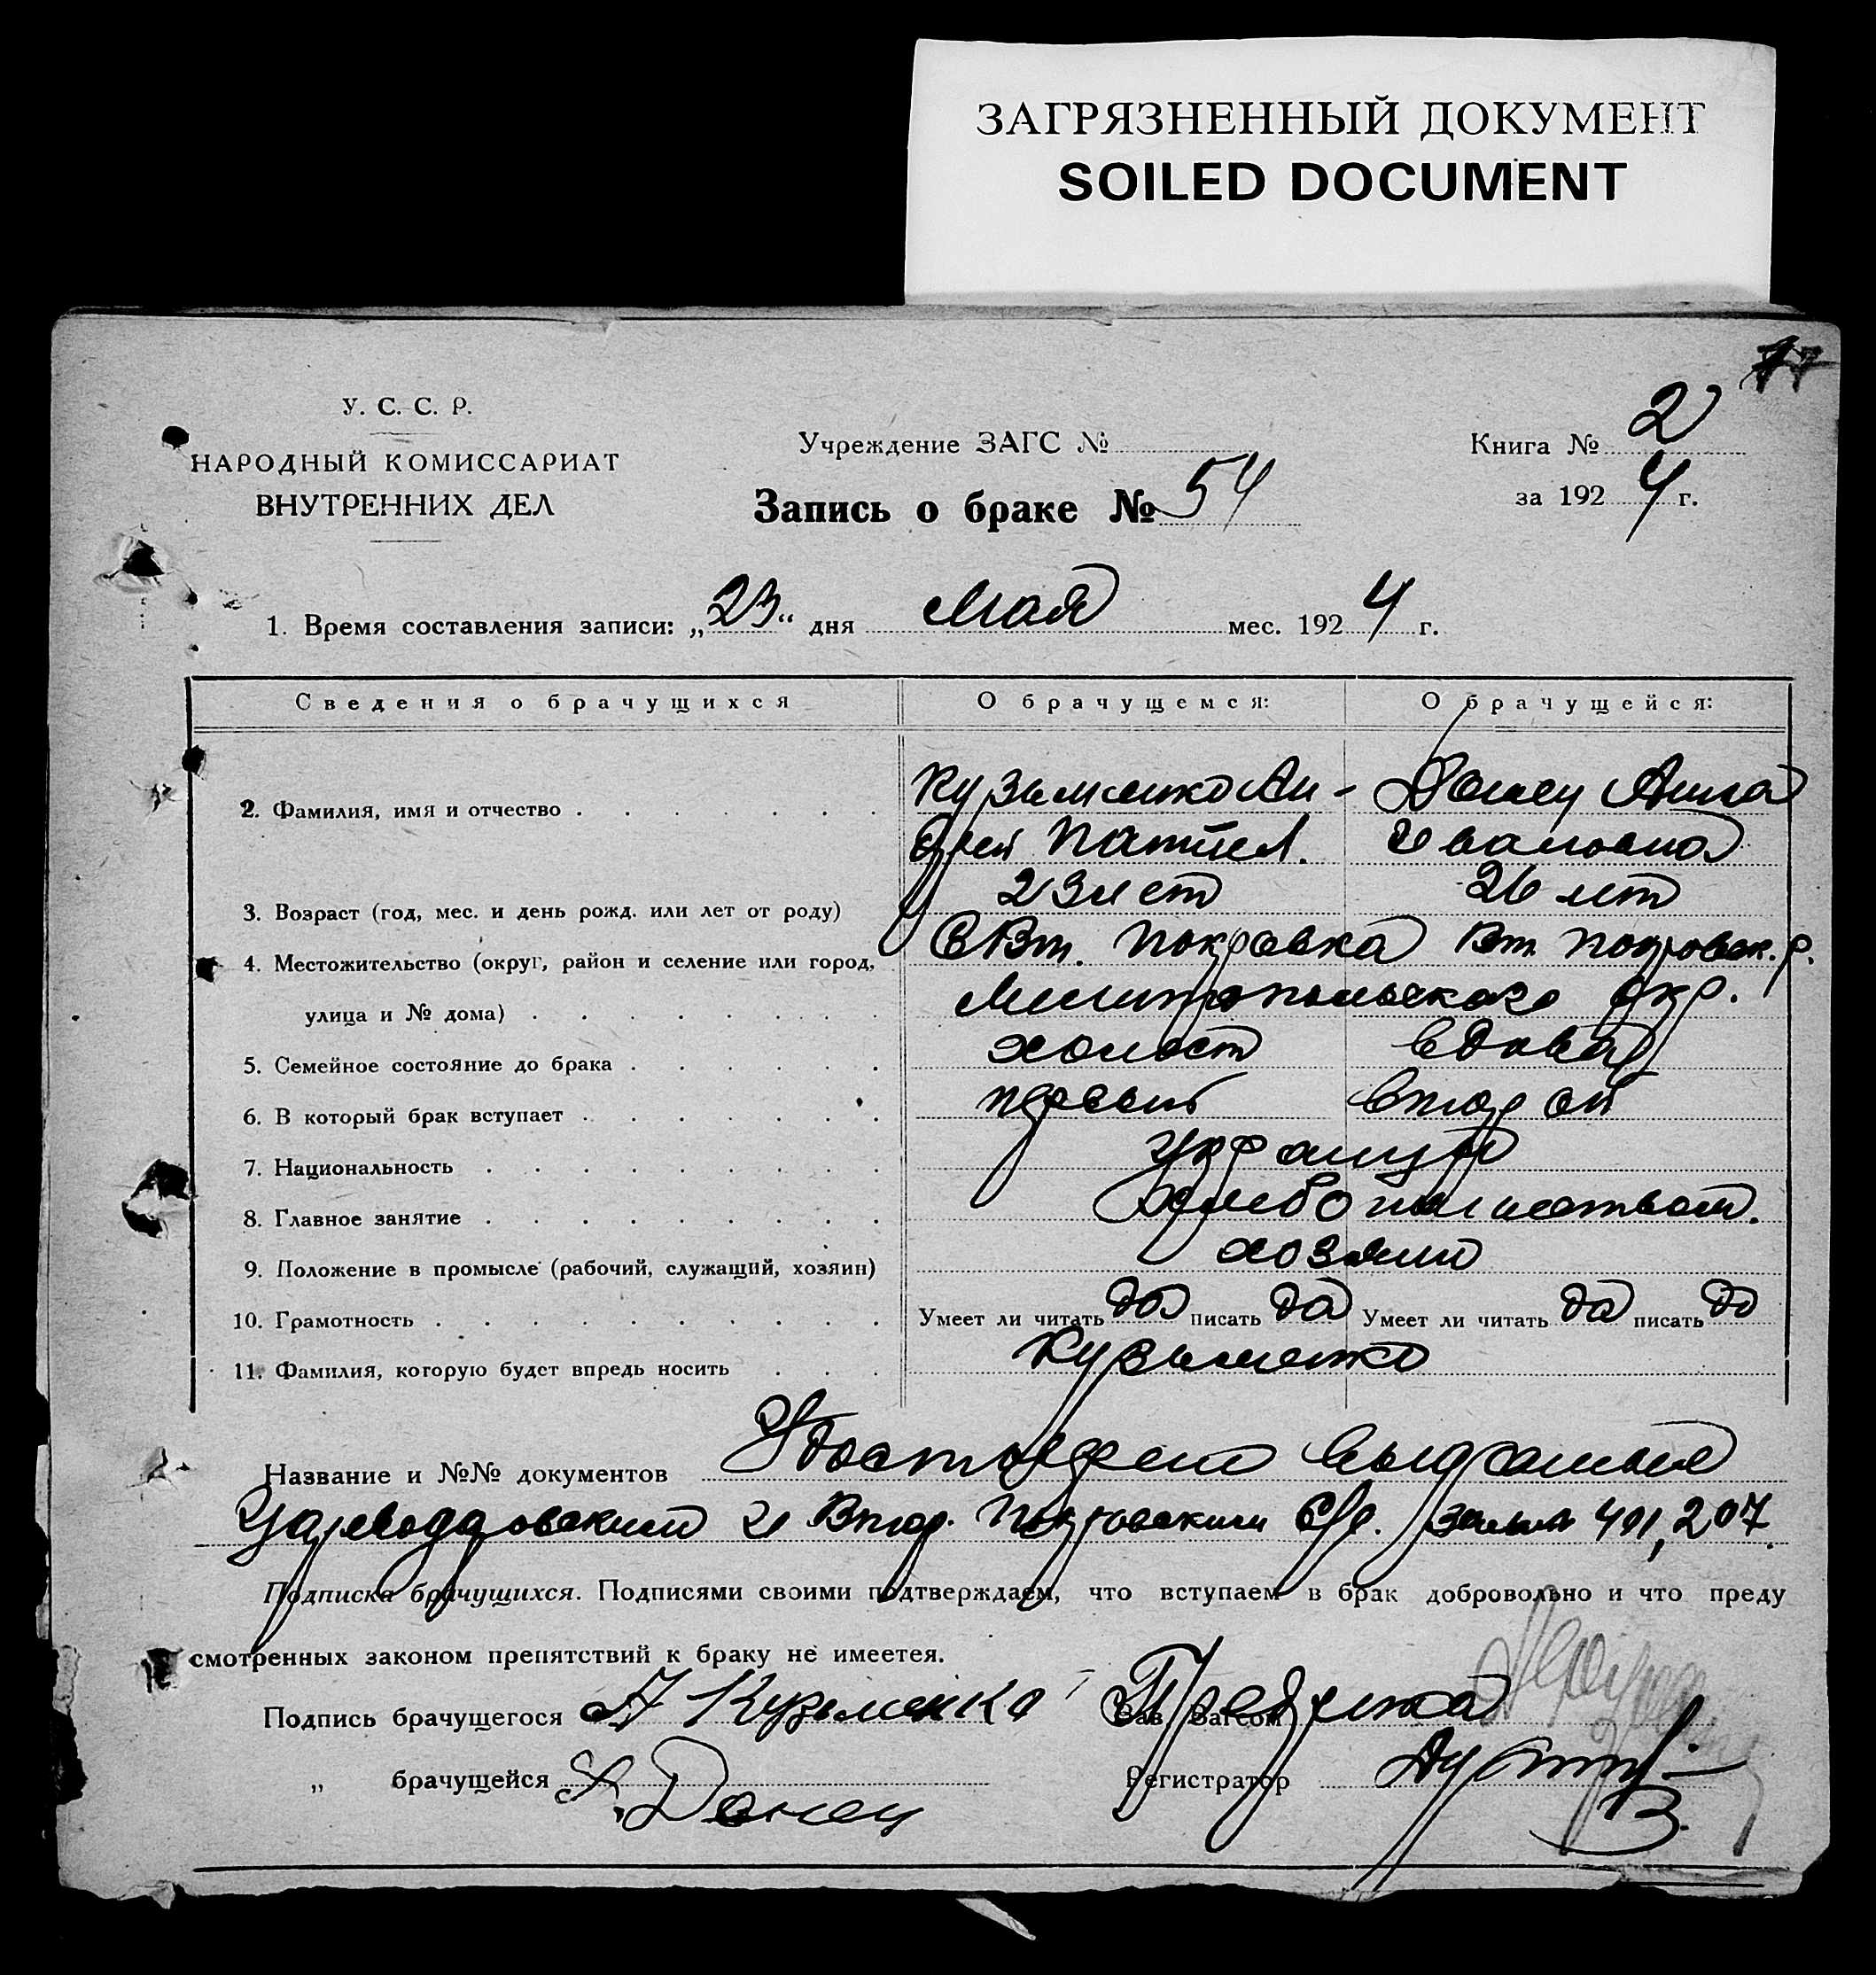 ЗАГРЯЗНЕННЫЙ ДОКУМЕНТ
SOILED DOCUMENT
У. С. С. Р.
НАРОДНЫЙ КОМИССАРИАТ
ВНУТРЕННИХ ДЕЛ
Учреждение ЗАГС №
Запись о браке № 54
Книга № 2
за 1924 г.
1. Время составления записи: „23“ дня Мая мес. 1924 г.
Сведения о брачущихся О брачущемся: О брачущейся:
2. Фамилия, имя и отчество Кузьменко Ан- Донец Анна
дрей Пантел. Ивановна
3. Возраст (год, мес. и день рожд. или лет от роду) 23 лет 26 лет
4. Местожительство (округ, район и селение или город, С Вт. Покровка Вт. Покровск. р.
улица и № дома) Мелитопольского окр.
5. Семейное состояние до брака холост вдова
6. В который брак вступает первый второй
7. Национальность украинцы
8. Главное занятие хлебопашеством.
9. Положение в промысле (рабочий, служащий, хозяин) хозяин
10. Грамотность Умеет ли читать да писать да Умеет ли читать да писать да
11. Фамилия, которую будет впредь носить Кузьменко
Название и №№ документов Удостоверен выданные
и Втор. Покровским С/С. за 401, 207.
Подписка брачущихся. Подписями своими подтверждаем, что вступаем в брак добровольно и что преду
смотренных законом препятствий к браку не имеется.
Подпись брачущегося А Кузьменко Зав. Загсом
„ брачущейся А. Донец Регистратор